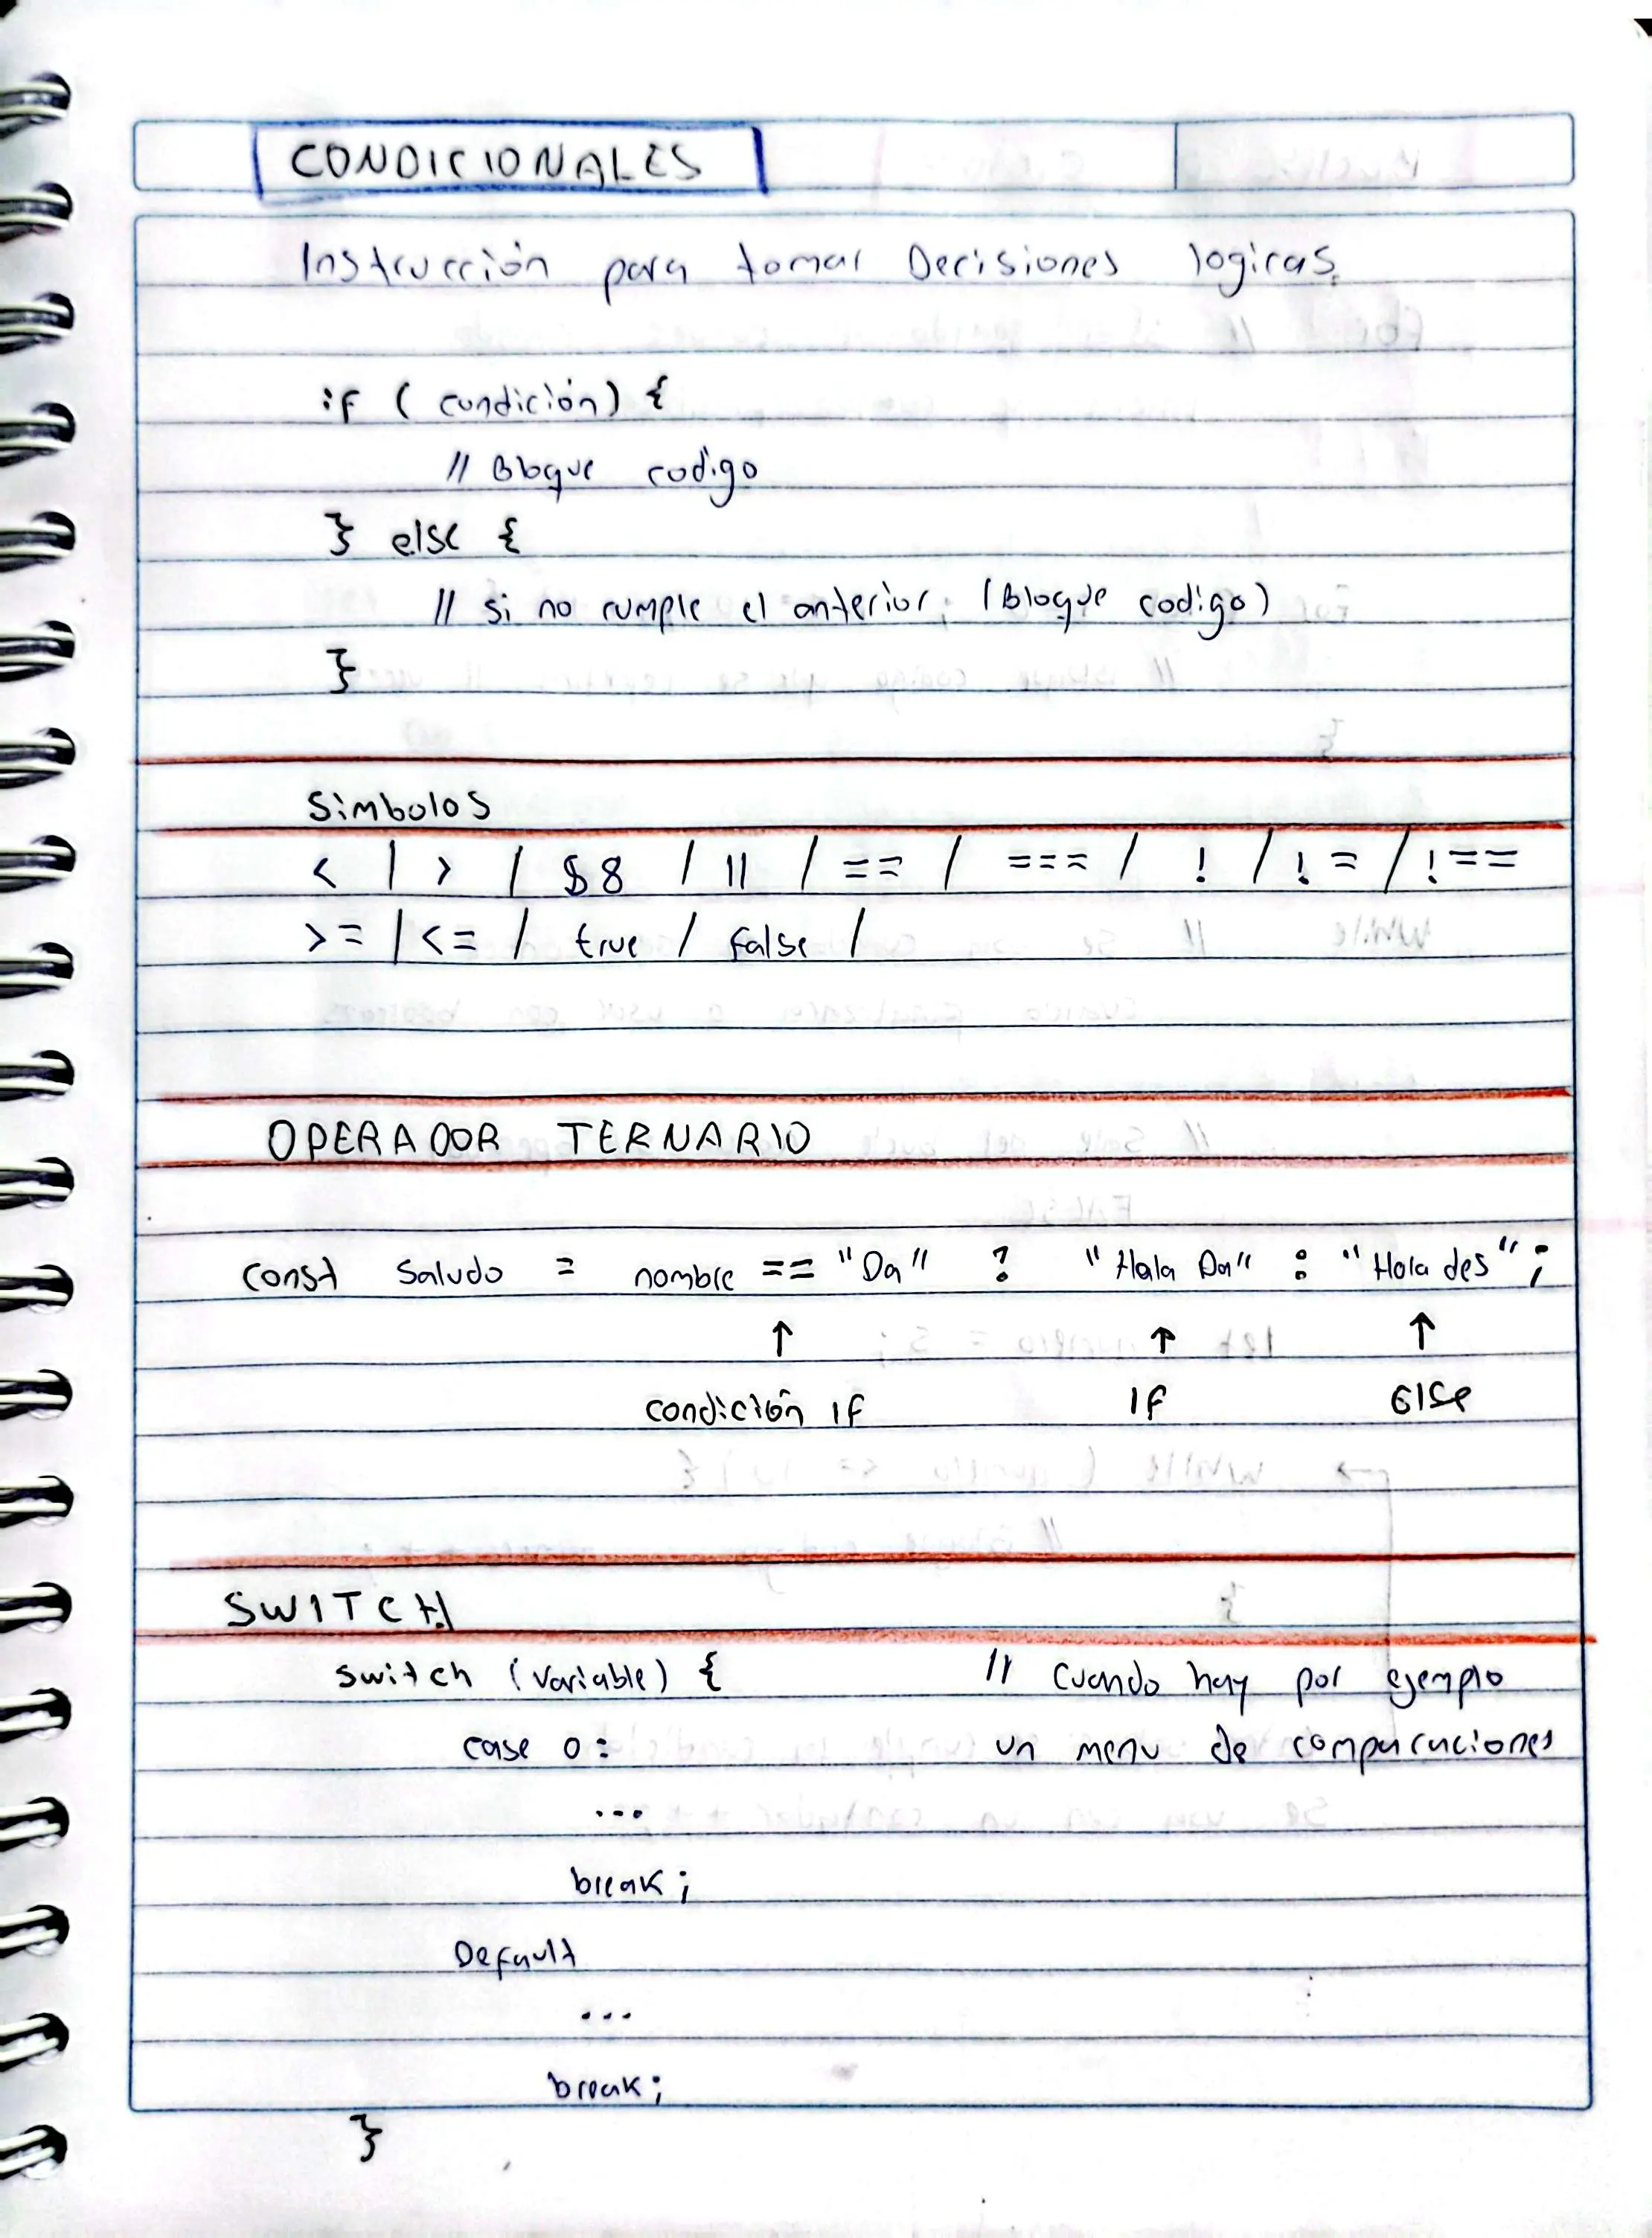 CONDICIONALES
Instrucción para tomar Decisiones logicas.
if ( condición) {
// Bloque codigo
} else {
// si no cumple el anterior. (Bloque codigo)
}
Simbolos
< | > / $8 / || / == / === / ! / != / !==
>= / <= / true / False /
OPERADOR TERNARIO
const Saludo = nombre == "Da" ? "Hala Da" : "Hola des";
↑ ↑ ↑
condición IF IF Else
SWITCH
switch (variable) { // Cuando hay por ejemplo
case 0: un menu de comparaciones
...
break;
Default
...
break;
}